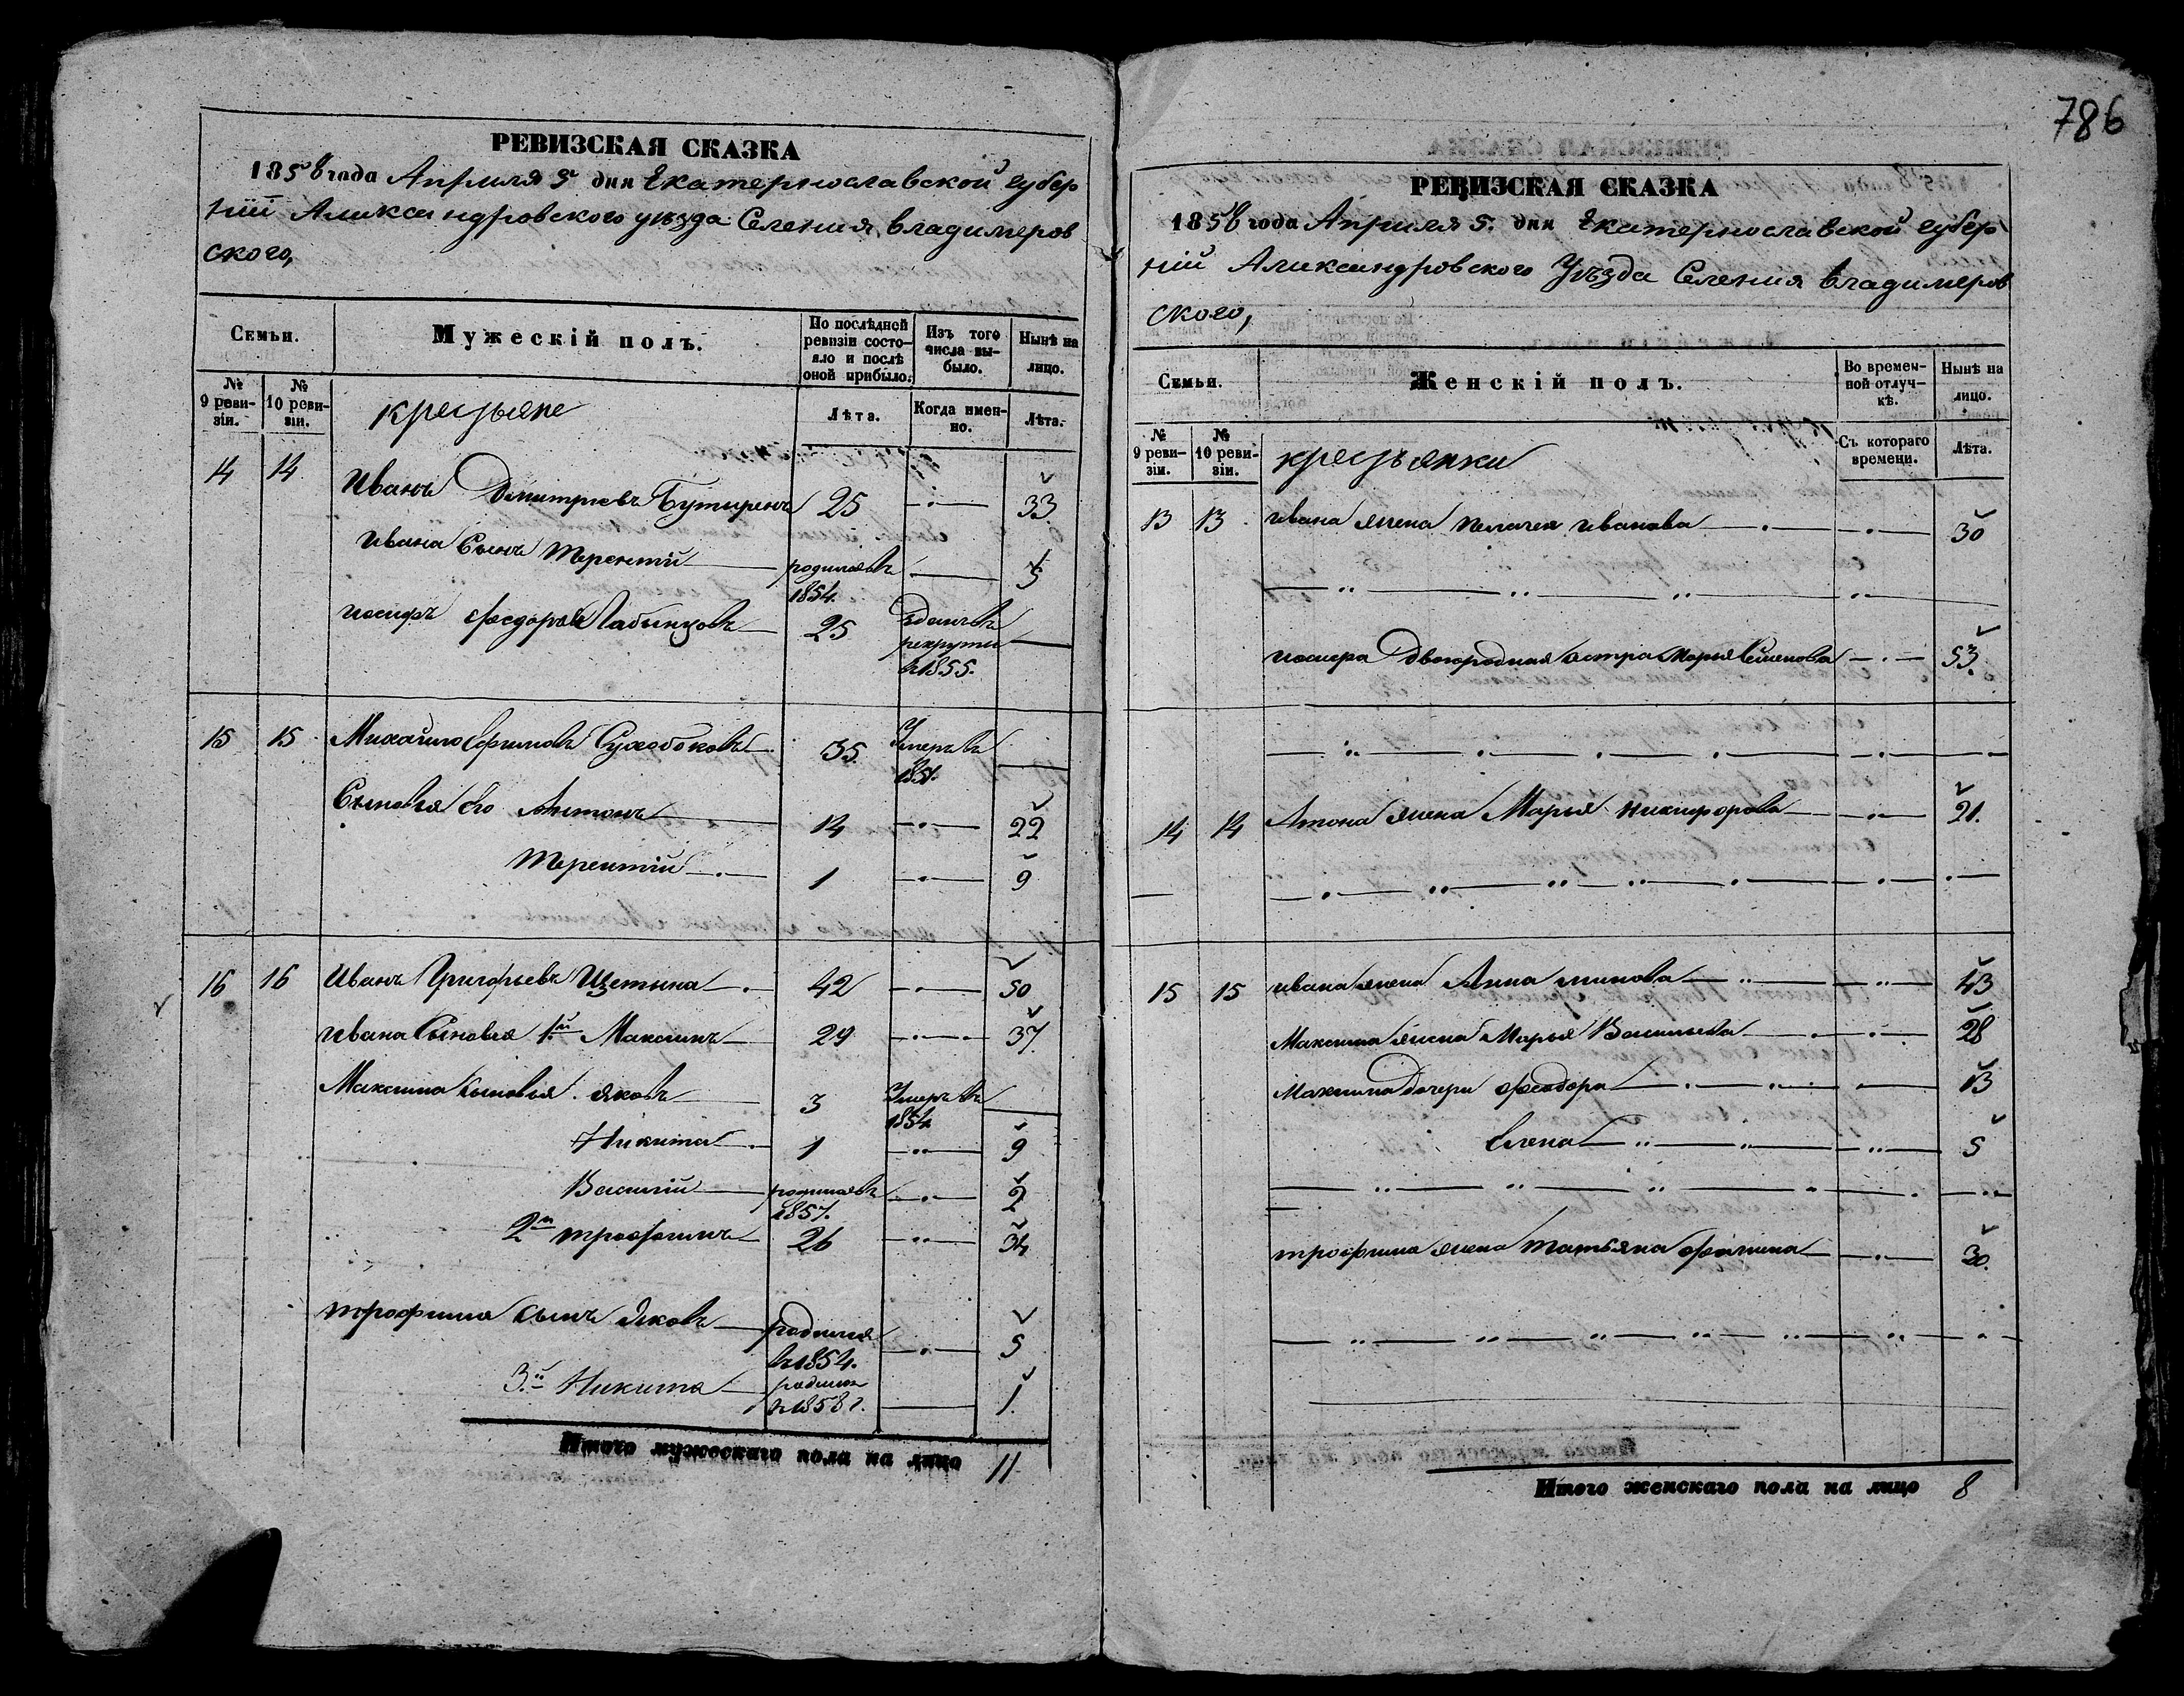 786
РЕВИЗСКАЯ СКАЗКА
1858 года Апреля 5 дня Екатеринославской губер
нiи Александровского уѣзда Селения Владимеров
ского,
Семьи.
Мужескій полъ.
По послѣдней ревизіи состояло и послѣ оной прибыло.
Изъ того числа выбыло.
Нынѣ на лицо.
№ 9 ревизіи.
№ 10 ревизіи.
крестьяне
Лѣта.
Когда именно.
Лѣта.
14 14 Иванъ Дмитриевъ Бутыренъ 25 33
Ивана Сынъ Терентiй родился въ 1854. 5
иосифъ Федоровъ 25 Зданъ въ рекруты в 1855.
15 15 Михайло Ефимовъ Сухобоковъ 35 Умеръ въ 1851.
Сыновья Его Антонъ 14 22
Терентiй 1 9
16 16 Иванъ Григорьевъ Щетына 42 50
Ивана Сыновья 1й Максимъ 29 37
Максима Сыновья яковъ 3 Умеръ въ 1854
Никита 1 9
Василiй родился въ 1857. 2
2й трофимъ 26 34
трофима сынъ Яковъ родился в 1854. 5
3й Никита родился в 1858 г. 1
Итого мужескаго пола на лицо 11
РЕВИЗСКАЯ СКАЗКА
1858 года Апреля 5. дня Екатеринославской губер
нiи Александровского Уѣзда Селения Владимеров
ского,
Семьи.
Женскій полъ.
Во временной отлучкѣ.
Нынѣ на лицо.
№ 9 ревизіи.
№ 10 ревизіи.
крестьянки
Съ котораго времени.
Лѣта.
13 13 Ивана жена Пелагея Иванова 30
иосифа Двоюродная сестра Марья Семенова 53
14 14 Антона жена Марья Никифорова 21.
15 15 ивана жена Анна 43
Максима жена Марья Васильева 28
Максима Дочери Феодора 13
Елена 5
трофима жена татьяна 30.
Итого женскаго пола на лицо 8